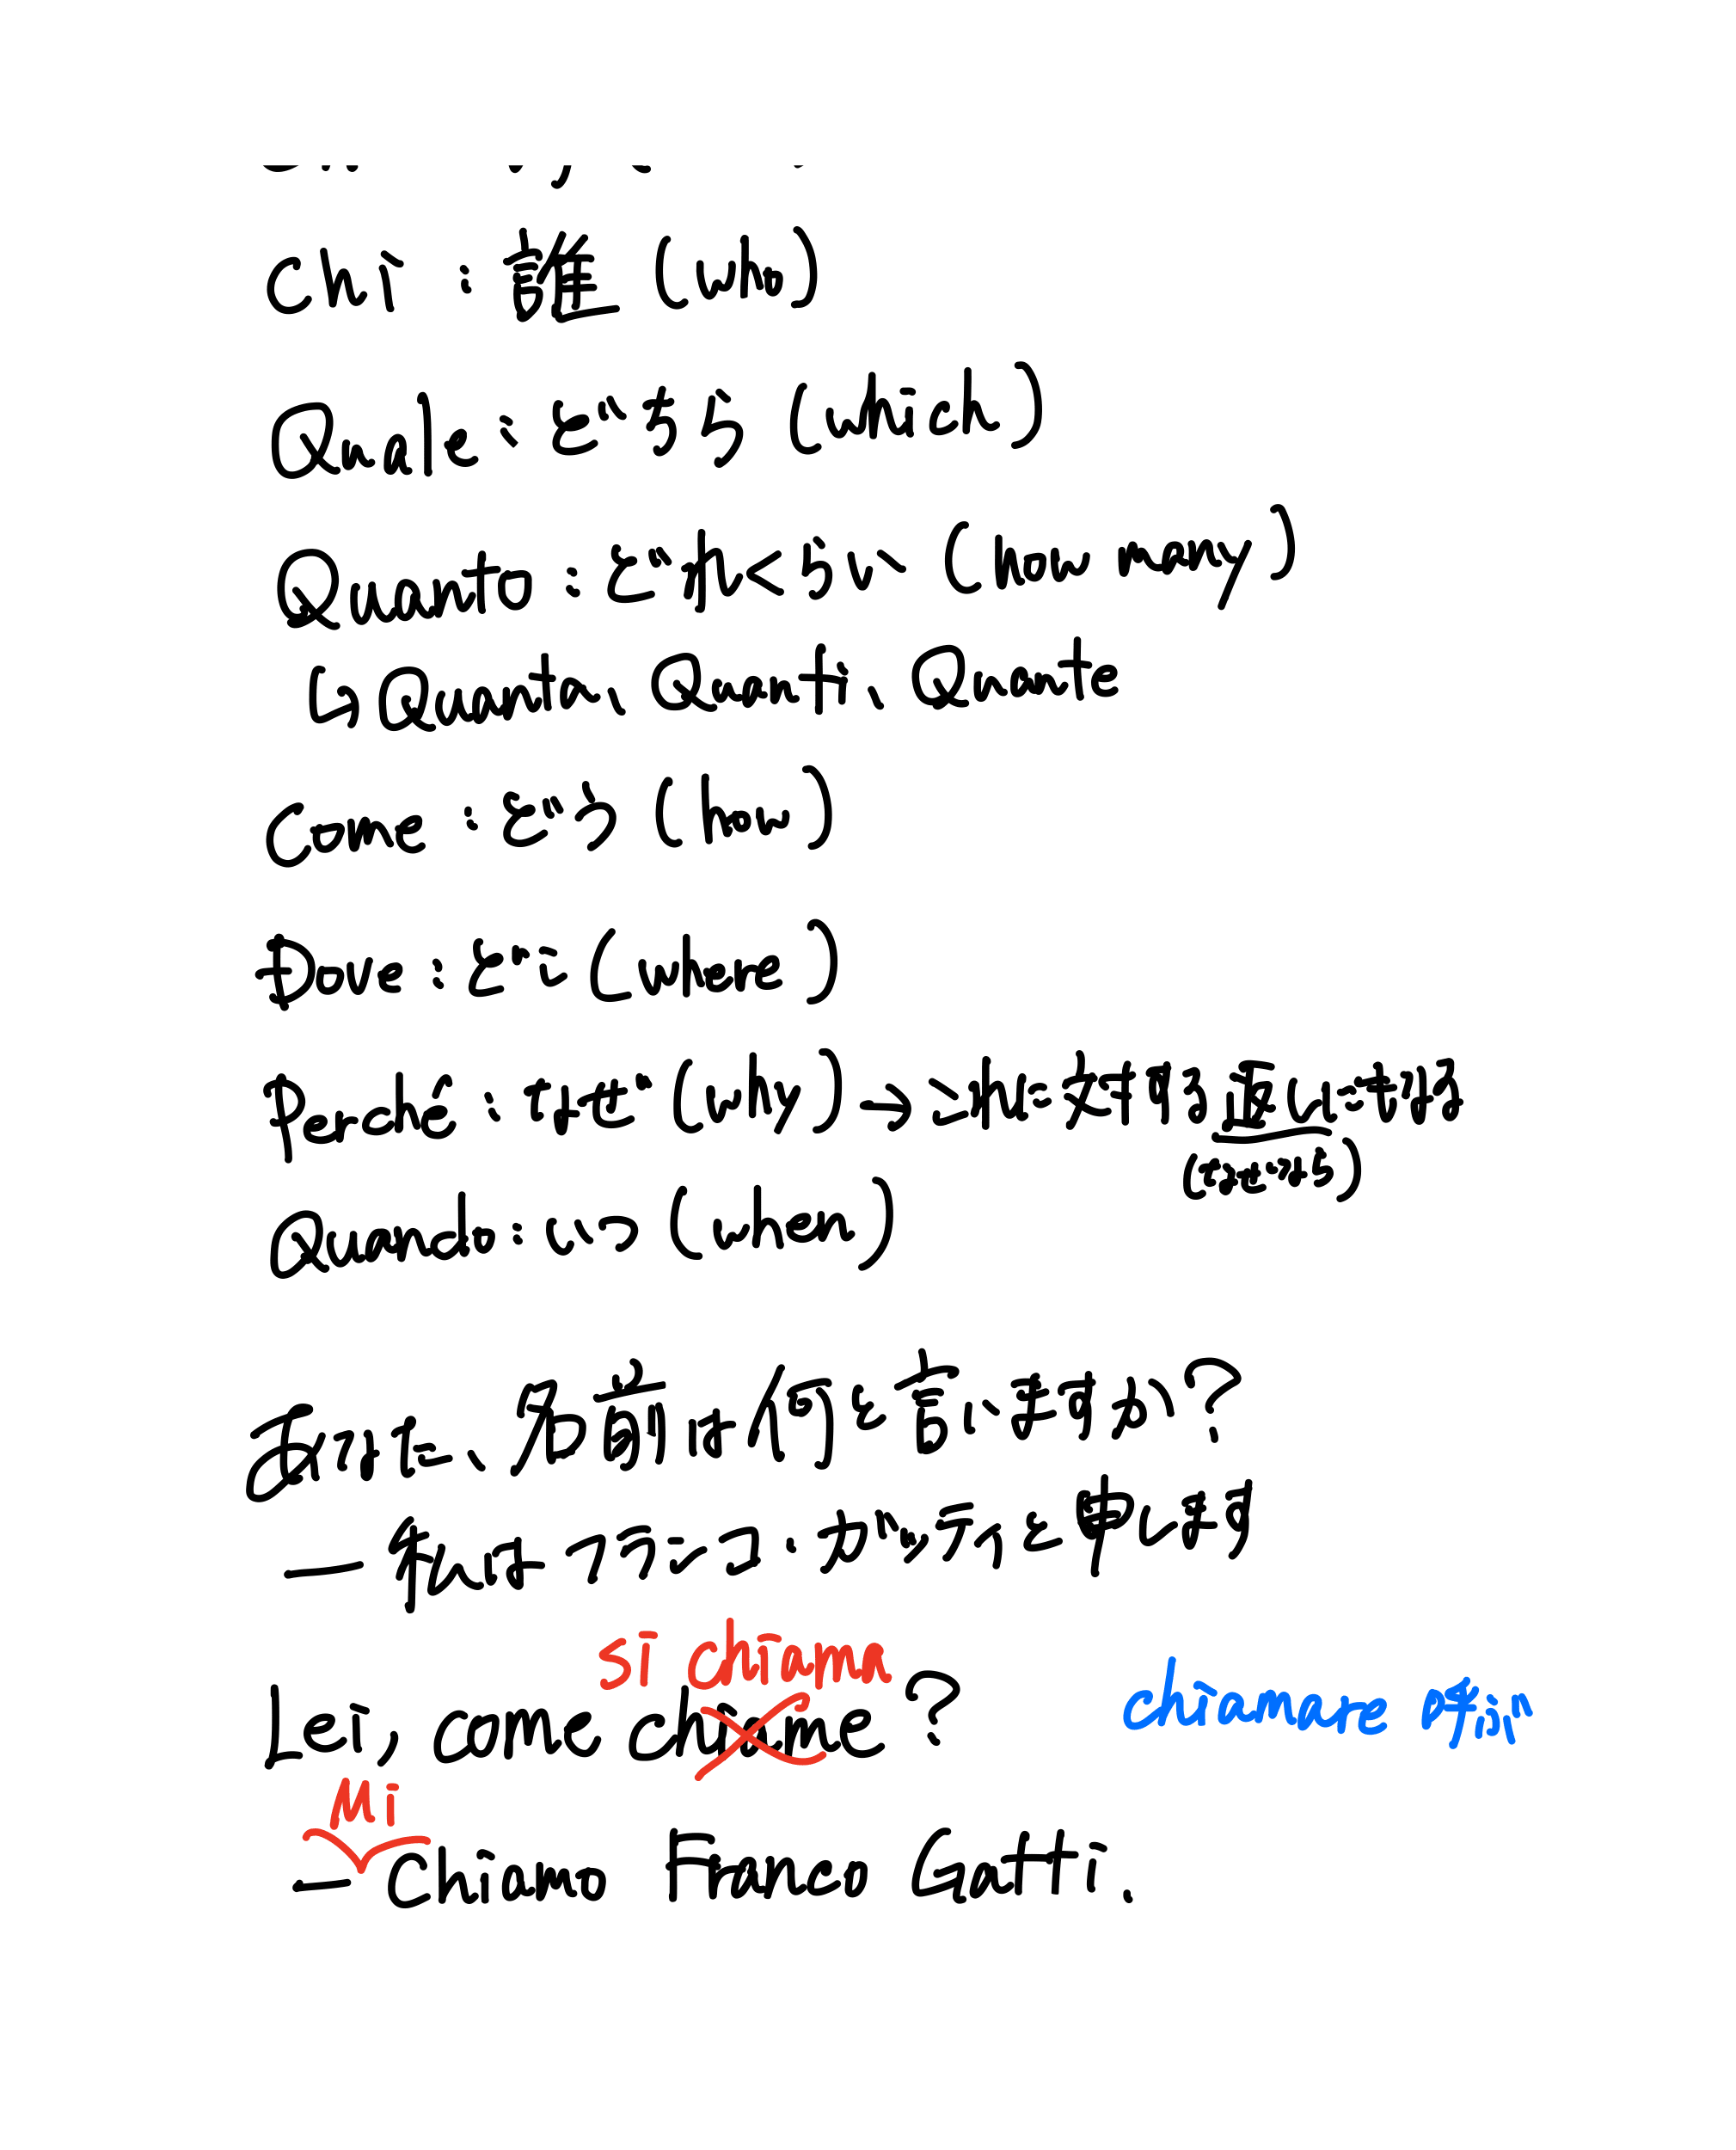 Chi : 誰 (who)
Quale : どちら (which)
Quanto : どれくらい (how many)
↳ Quanta、Quanti、Quante
Come : どう (how)
Dove : どこ (where)
Perché : なぜ (why) → これに対する返しにもなる
(なぜなら)
Quando : いつ (when)
あなた、名前は何と言いますか?
— 私はフランコ・ガッティと申します
si chiama
Lei, come chiame ? chiamare
Mi
— Chiamo Franco Gatti.